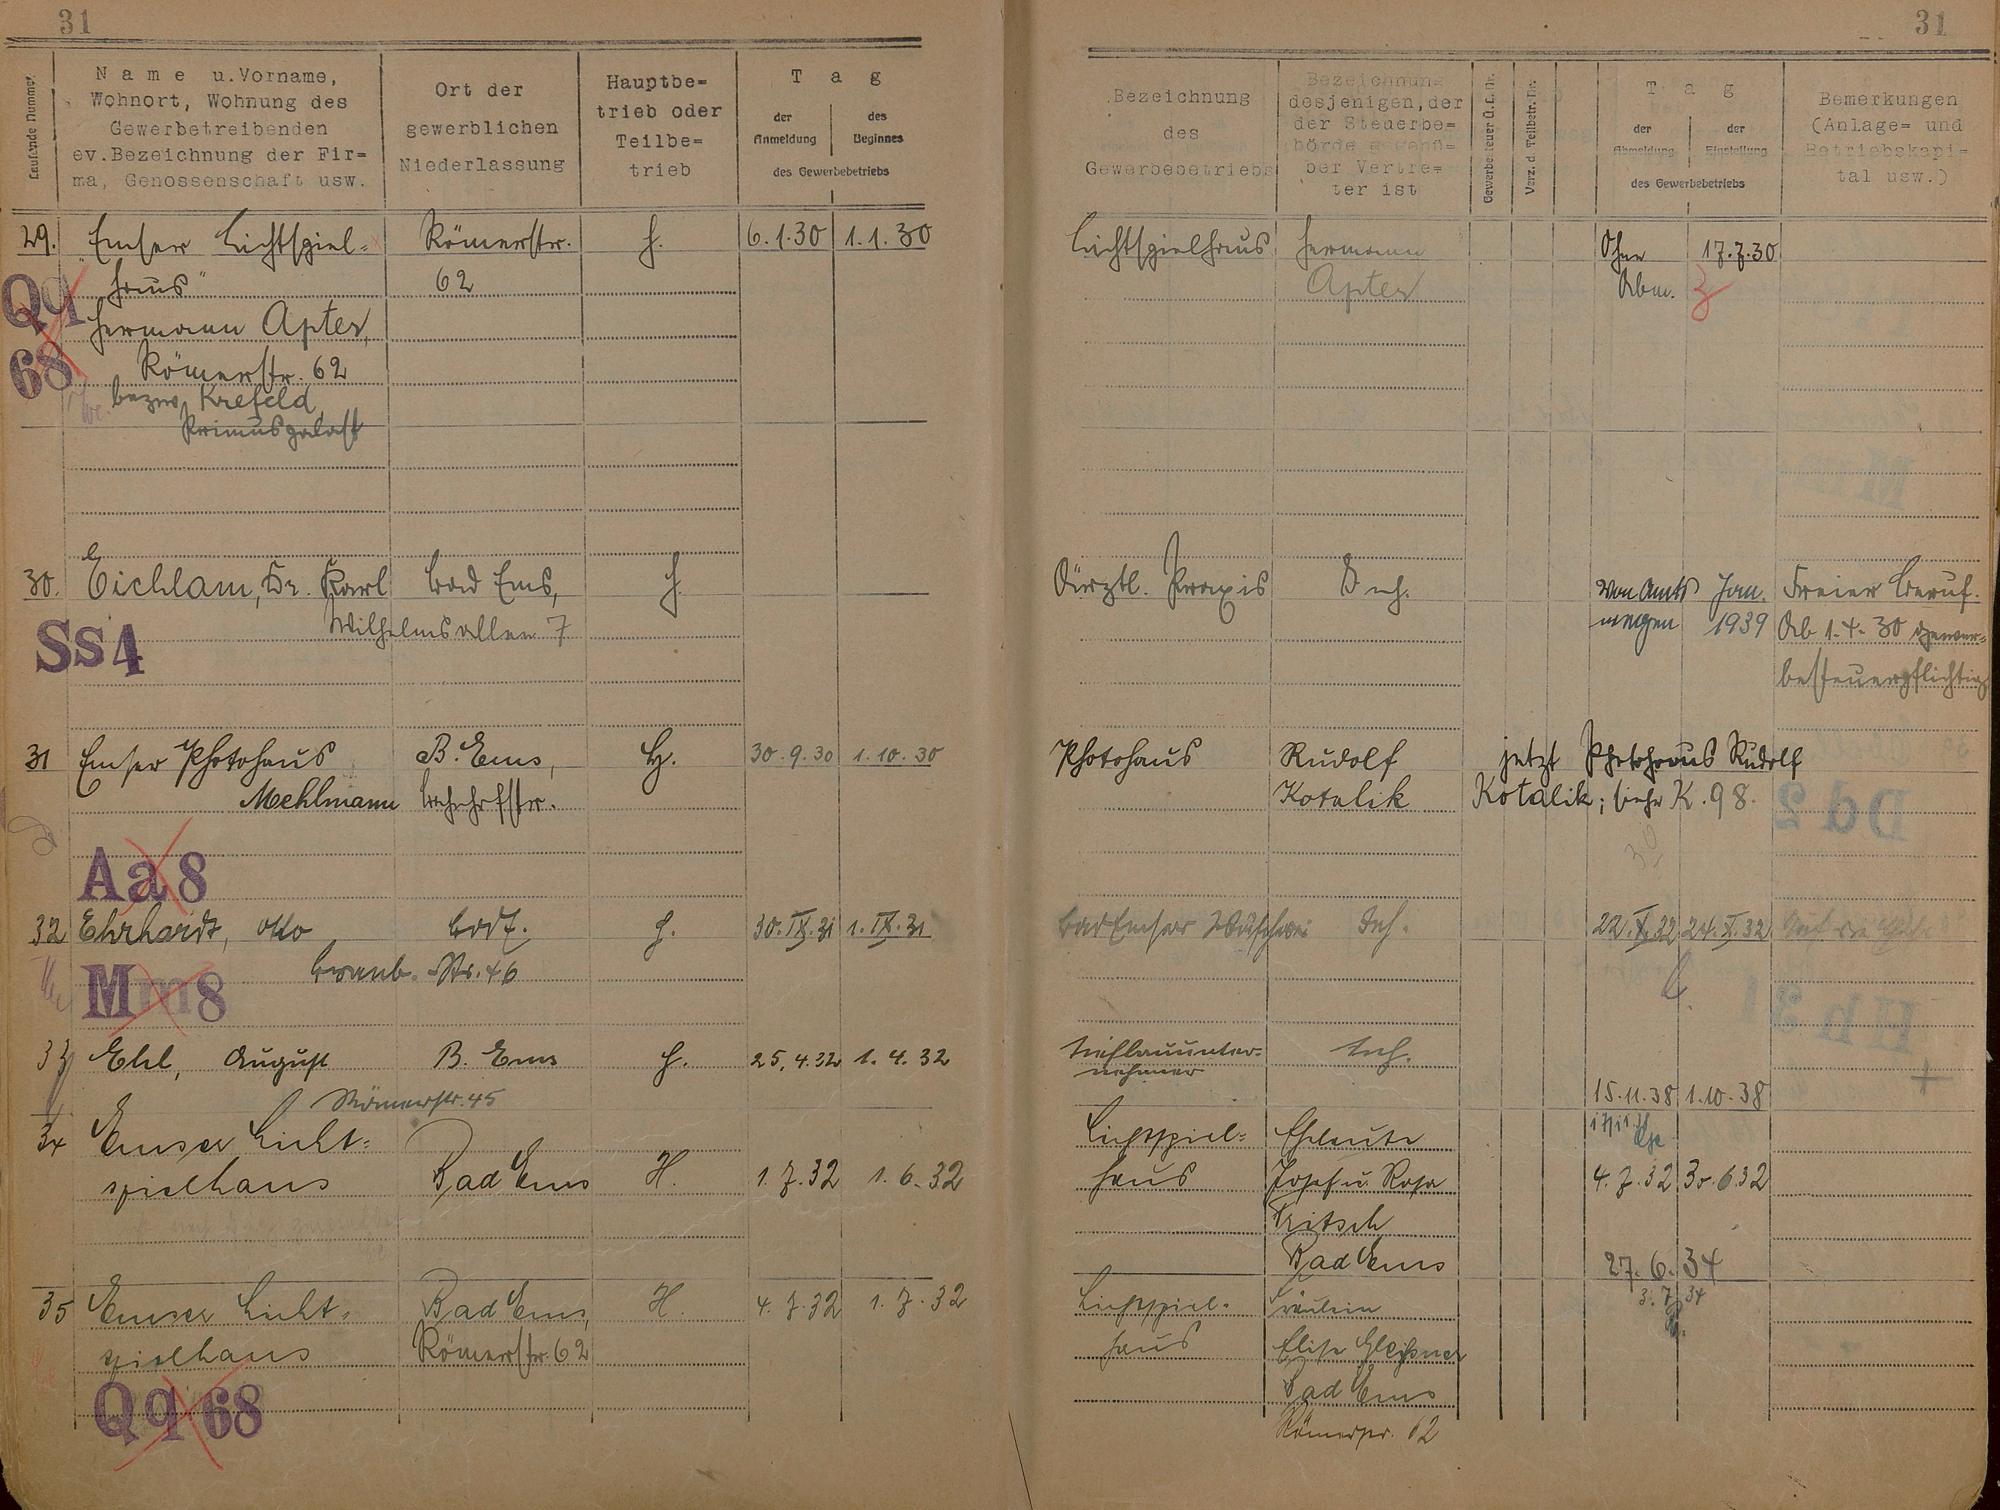 31
31
Laufende Nummer
Name u. Vorname,
Wohnort, Wohnung des
Gewerbetreibenden
ev. Bezeichnung der Fir=
ma, Genossenschaft usw.
Ort der
gewerblichen
Niederlassung
Hauptbe=
trieb oder
Teilbe=
trieb
Tag
der
Anmeldung
des
Beginnes
des Gewerbebetriebs
Bezeichnung
des
Gewerbebetriebs
Bezeichnung
desjenigen, der
der Steuerbe=
hörde gegenü=
ber Vertre=
ter ist
Gewerbesteuer Ü. L. Nr.
Verz. d. Teilbetr. Nr.
Tag
der
Abmeldung
der
Einstellung
des Gewerbebetriebs
Bemerkungen
(Anlage= und
Betriebskapi=
tal usw.)
29. "Emser Lichtspiel= Römerstr. H. 6.1.30 1.1.30 Lichtspielhaus Hermann Ohne 17.7.30
haus" 62 Apter Abm.
Qq
Hermann Apter,
68
Römerstr. 62
bezw. Krefeld,
Primuspalast
30. Eichlam, Dr. Karl Bad Ems, H. Ärztl. Praxis Inh. Von Amts Jan. Freier Beruf.
Wilhelmsallee 7 wegen 1939 Ab 1.4.30 gewer=
Ss4
besteuerpflichtig
31 Emser Photohaus B. Ems, H. 30.9.30 1.10.30 Photohaus Rudolf jetzt Photohaus Rudolf
Mehlmann Bahnhofstr. Kotalik Kotalik; siehe K. 98.
Aa8
32 Ehrhardt, Otto H. 30.IX.31 1.IX.31 Bad Emser Inh. 22.X.32 24.X.32
Braub. Str. 46
Mm8
33 Ehl, August B. Ems H. 25.4.32 1.4.32 Tiefbauunter= Inh.
nehmer
Römerstr. 45 15.11.38 1.10.38
34 Emser Licht= Lichtspiel= Eheleute
spielhaus Bad Ems H. 1.7.32 1.6.32 haus Josef u. Rosa 4.7.32 30.6.32
Fritsch
Bad Ems 27.6.34
35 Emser Licht= Bad Ems, H. 4.7.32 1.7.32 Lichtspiel= Fräulein 3.7.34
spielhaus Römerstr. 62 haus Elise Gleißner
Qq 68
Bad Ems
Römerstr. 62